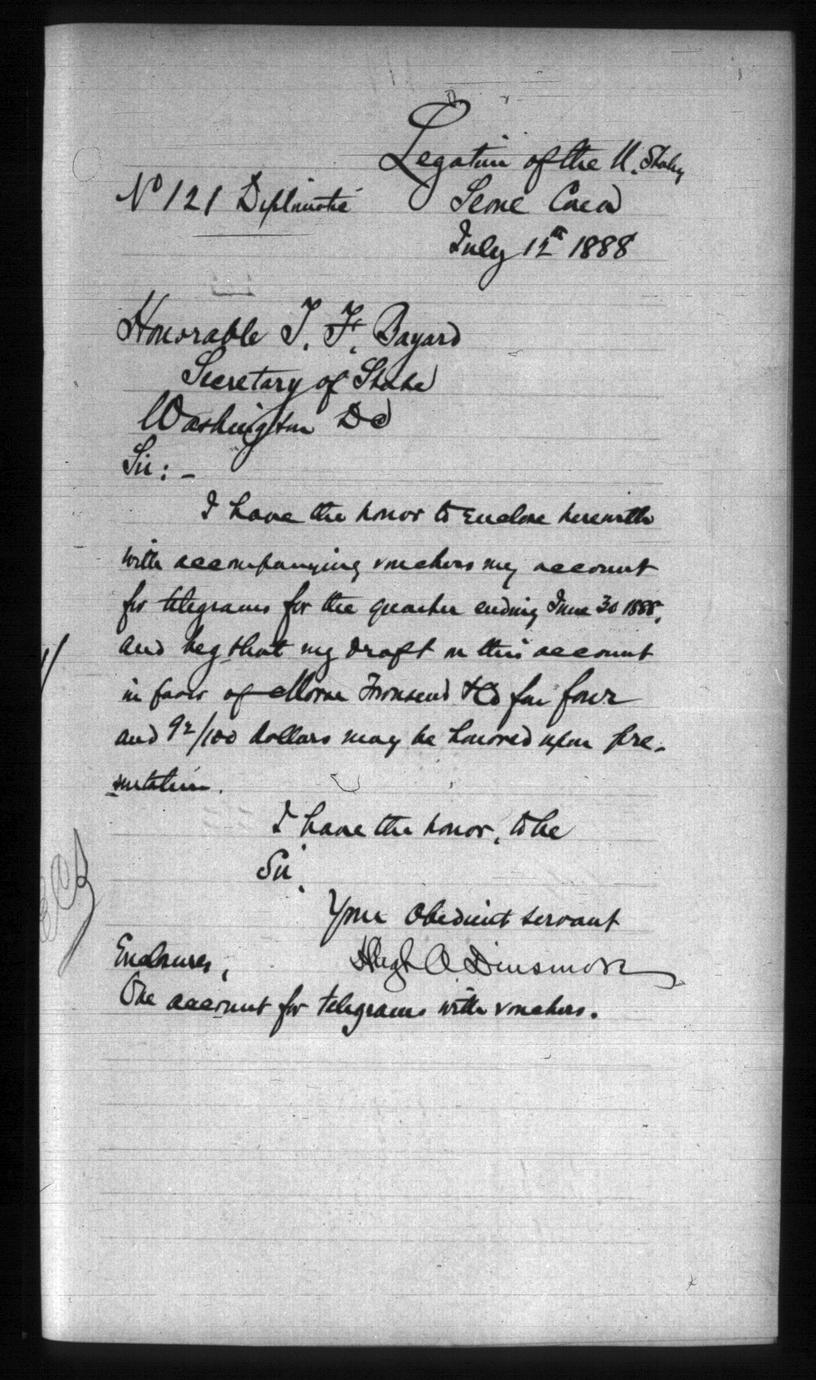 Legation of the U. States
No 121 Diplomatic
Seoul Corea
July 12th 1888
Honorable T. F. Bayard
Secretary of State
Washington DC
Sir: -
I have the honor to Enclose herewith
with accompanying vouchers my account
for telegrams for the quarter ending June 30 1888,
and beg that my draft on this account
in favor of Morse Townsend & Co for four
and 92/100 dollars may be honored upon pre-
sentation.
I have the honor, to be
Sir,
Your Obedient servant
Hugh A Dinsmore
Enclosures,
One account for telegrams with vouchers.